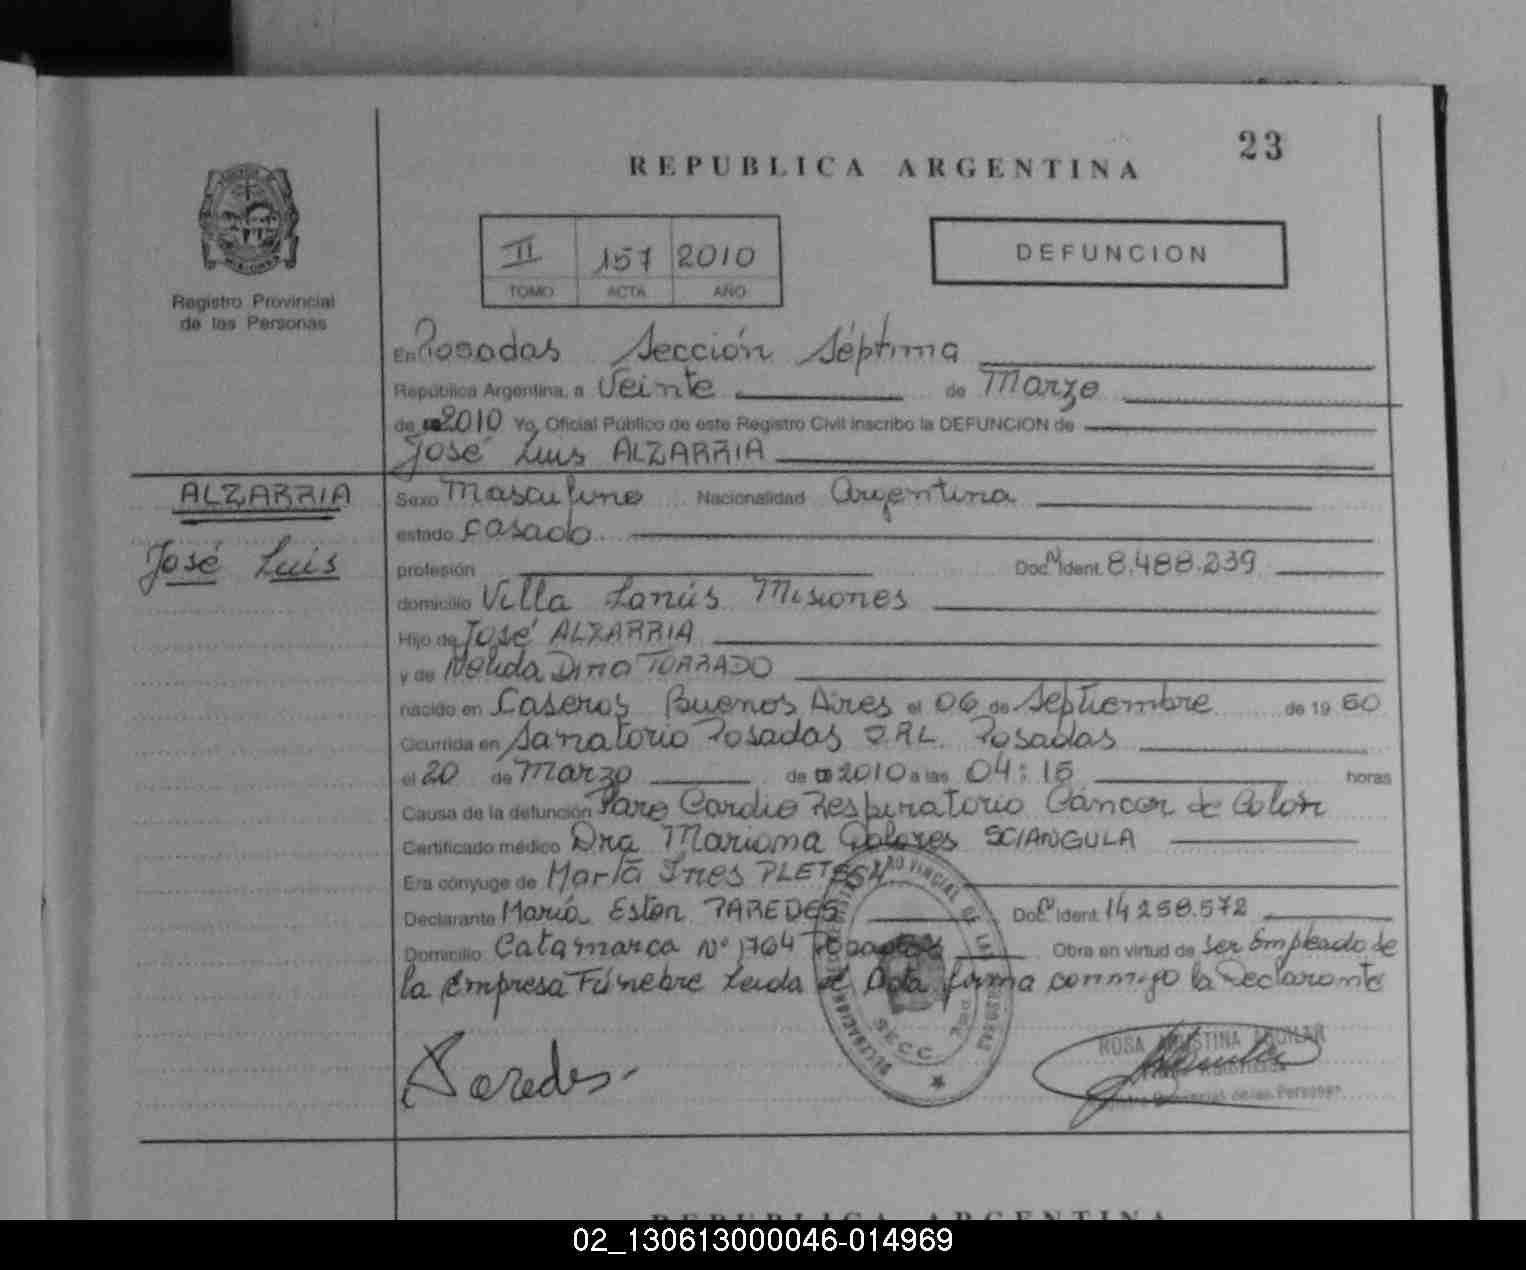 23
REPUBLICA ARGENTINA
II 157 2010
TOMO ACTA AÑO
DEFUNCION
Registro Provincial
de las Personas
En Posadas Sección Séptima
República Argentina, a Veinte de Marzo
de 2010 Yo, Oficial Público de este Registro Civil inscribo la DEFUNCION de
José Luis ALZARRIA
ALZARRIA
José Luis
Sexo Masculino Nacionalidad Argentina
estado Casado
profesión Doc. Ident. 8.488.239
domicilio Villa Lanús Misiones
Hijo de José ALZARRIA
y de Nelida Dina TORRADO
nacido en Caseros Buenos Aires el 06 de Septiembre de 19 50
Ocurrida en Sanatorio Posadas S.R.L. Posadas
el 20 de Marzo de 2010 a las 04:15 horas
Causa de la defunción Paro Cardio Respiratorio Cáncer de Colon
Certificado médico Dra Mariana Dolores SCIANGULA
Era cónyuge de Marta Ines
Declarante María Ester PAREDES Doc. Ident. 14.258.572
Domicilio Catamarca Nº 1764 Posadas Obra en virtud de ser Empleado de
la Empresa Fúnebre Leida el Acta firma conmigo la Declarante
SECC. 7ma
Paredes
ROSA AGUSTINA AGUILAR
REPUBLICA ARGENTINA
02_130613000046-014969